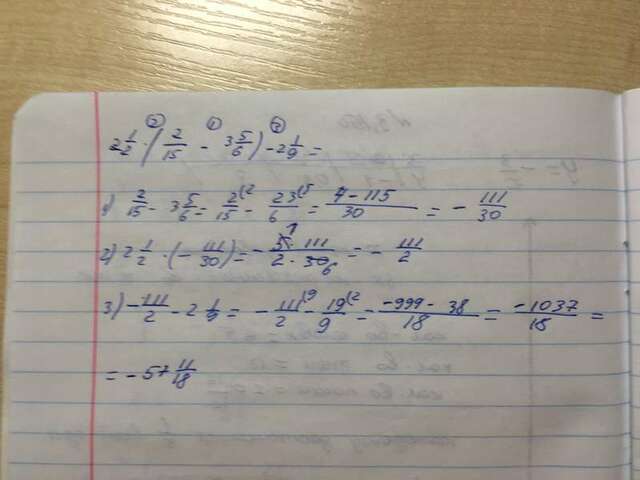 ② ① ③
2 1/2 · (2/15 - 3 5/6) - 2 1/9 =
1) 2/15 - 3 5/6 = 2/15 - 23/6 = 4-115/30 = - 111/30
2) 2 1/2 · (- 111/30) = - 5 · 111/2 · 30 = - 111/2
3) - 111/2 - 2 1/9 = - 111/2 - 19/9 = -999 - 38/18 = -1037/18 =
= -57 11/18